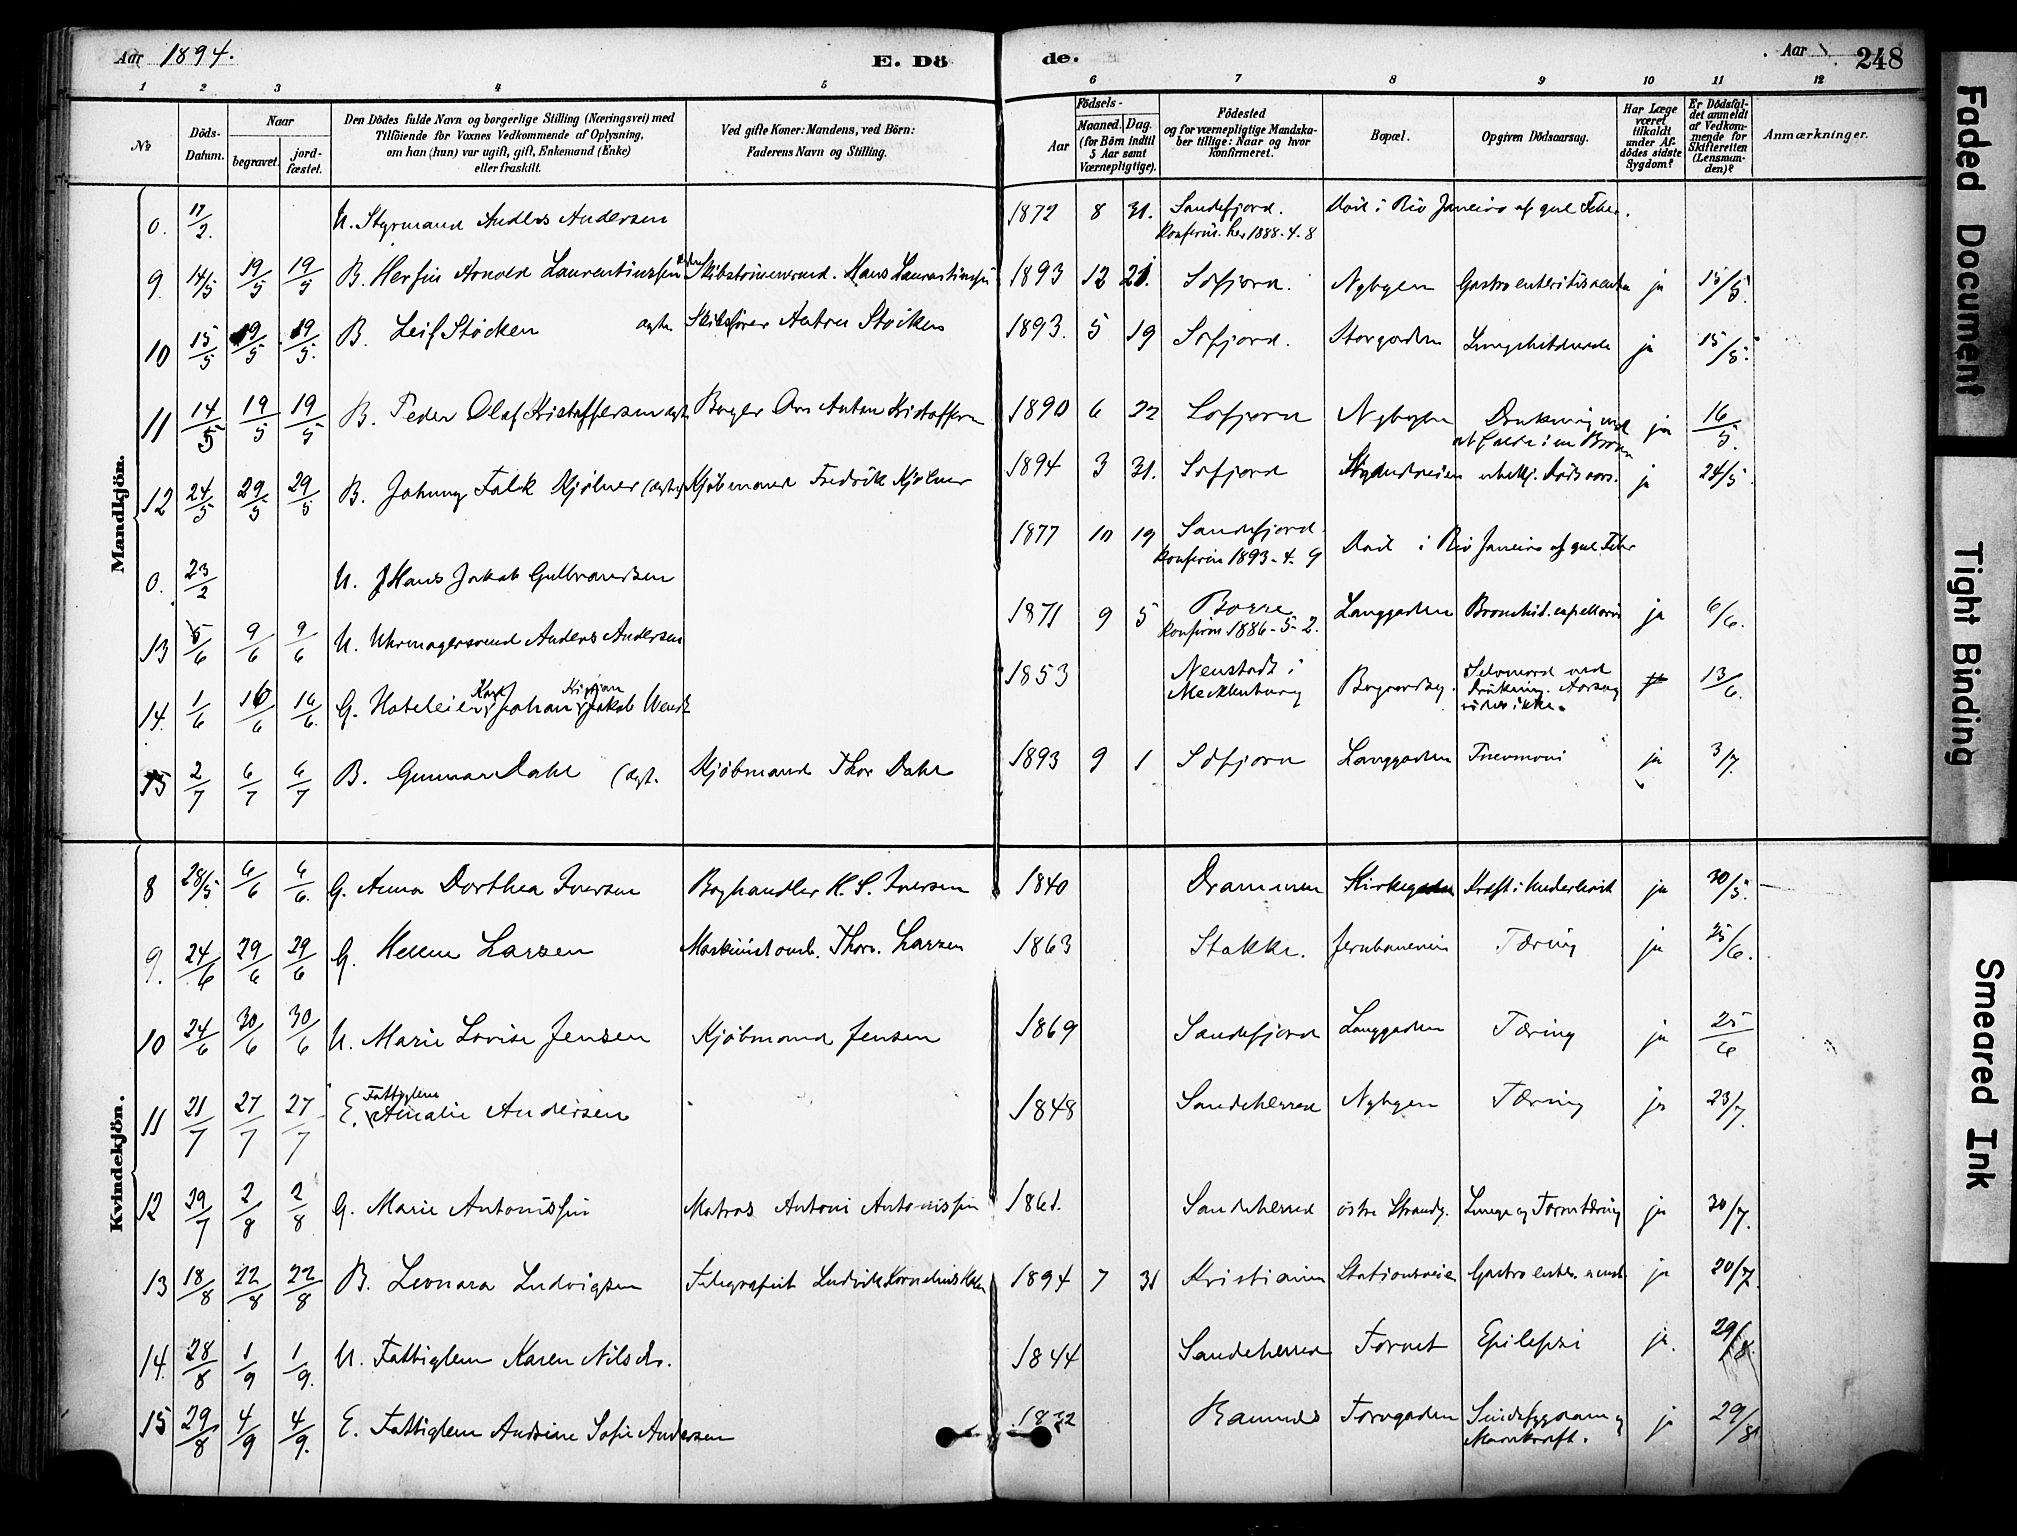 Aar 1894.
E. Dö
de.
Aar
248
1 2 3 4 5 6 7 8 9 10 11 12
No
Döds-Datum.
Naar
begravet.
jord-fæstet.
Den Dödes fulde Navn og borgerlige Stilling (Næringsvei) med
Tilföiende for Voxnes Vedkommende af Oplysning,
om han (hun) var ugift, gift, Enkemand (Enke)
eller fraskilt.
Ved gifte Koner: Mandens, ved Börn:
Faderens Navn og Stilling.
Födsels-
Aar
Maaned. Dag.
(for Börn indtil
5 Aar samt
Værnepligtige).
Födested
og for værnepligtige Mandska-
ber tillige: Naar og hvor
konfirmeret.
Bopæl.
Opgiven Dödsaarsag.
Har Læge
været
tilkaldt
under Af-
dödes sidste
Sygdom?
Er Dödsfal-
det anmeldt
af Vedkom-
mende for
Skifteretten
(Lensman-
den)?
Anmærkninger.
Mandkjön.
0. 17/2. U. Styrmand Anders Andersen 1872 8 31. Sandefjord. Död i Rio Janeiro af gul Feber.
konfirm. her 1888.4.8
9. 14/5 19/5 19/5 B. Arnold Laurentiussen Hans Laurentiussen 1893 12 21. Sdfjord. Nybyen Gastroenteritis acuta ja 15/5.
10 15/5 19/5 19/5. B. Leif Stöcken ægte Skibsförer Anton Stöcken 1893. 5 19 Sdfjord. Storgaden ja 15/5.
11 14/5 19/5 19/5 B. Peder Olaf Kristoffersen ægte Bager Anton Kristoffersen 1890 6 22 Sdfjord Nybyen Drukning ved
at falde i en Brönn ja 16/5.
12 24/5 29/5 29/5 B. Johnny Falk Kjölner (ægte) Kjöbmand Fredrik Kjölner 1894 3 31. Sdfjord ubekj. Dödsaars. ja 24/5.
0. 23/2 U. Hans Jakob Gulbrandsen 1877 10 19 Sandefjord. Död i Rio Janeiro af gul Feber
konfirm 1893-4-9
13 5/6 9/6 9/6 U. Uhrmagersvend Anders Andersen 1871 9 5 Borre Langgaden Bronchit. capillaris ja 6/6.
konfirm 1886-5-2.
14. 1/6 16/6 16/6. G. Hoteleier Karl Johan Kristian Jakob Wendt 1853 Neustadt i
Mecklenburg Selvmord ved
Drukning. Aarsag
vides ikke. 13/6.
15 2/7 6/7 6/7 B. Gunnar Dahl (ægt. Kjöbmand Thor Dahl 1893 9 1 Sdfjord Langgaden Pneumoni ja 3/7.
Kvindekjön.
8 28/5. 6/6 6/6. G. Anna Dorthea Iversen Boghandler H. S. Iversen 1840 Drammen Kirkegaden Kræft i Underlivet ja 30/5.
9. 24/6 29/6 29/6 G. Helene Larsen Thorv. Larsen 1863 Stokke. Jernbaneveien Tæring ja 25/6.
10 24/6 30/6 30/6 U. Marie Lovise Jensen Kjöbmand Jensen 1869 Sandefjord Langgaden Tæring ja 25/6
11 21/7 27/7 27/7 E. Fattiglem Amalie Andersen 1848 Sandeherred Nybyen Tæring ja 23/7.
12 29/7 2/8 2/8 G. Marie Antonissen Matros Antoni Antonissen 1861. Sandeherred östre Strandg. Lunge og Tarmtæring ja 30/7.
13 18/8 22/8 22/8 B. Leonora Ludvigsen Telegrafist Ludvik Kornelius 1894 7 31 Kristiania Stationsveien Gastroenter. acut. ja 20/7.
14. 28/8 1/9 1/9. U. Fattiglem Karen Nilsdr. 1844 Sandeherred Torvet Epilepsi ja. 29/8.
15 29/8 4/9 4/9. E. Fattiglem Andrine Sofie Andersen 1832 Ramnes Torvgaden Sindssygdom og
Mavekræft. ja 29/8
Faded Document
Tight Binding
Smeared Ink